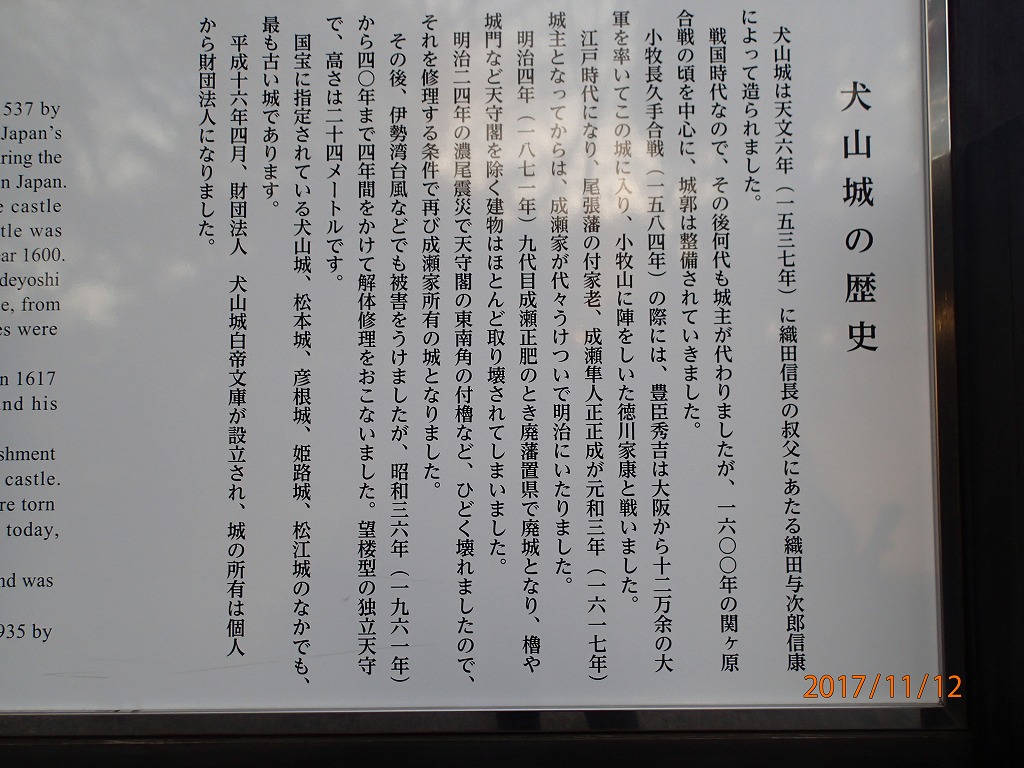 犬山城の歴史
犬山城は天文六年（一五三七年）に織田信長の叔父にあたる織田与次郎信康
によって造られました。
戦国時代なので、その後何代も城主が代わりましたが、一六〇〇年の関ヶ原
合戦の頃を中心に、城郭は整備されていきました。
小牧長久手合戦（一五八四年）の際には、豊臣秀吉は大阪から十二万余の大
軍を率いてこの城に入り、小牧山に陣をしいた徳川家康と戦いました。
江戸時代になり、尾張藩の付家老、成瀬隼人正正成が元和三年（一六一七年）
城主となってからは、成瀬家が代々うけついで明治にいたりました。
明治四年（一八七一年）九代目成瀬正肥のとき廃藩置県で廃城となり、櫓や
城門など天守閣を除く建物はほとんど取り壊されてしまいました。
明治二四年の濃尾震災で天守閣の東南角の付櫓など、ひどく壊れましたので、
それを修理する条件で再び成瀬家所有の城となりました。
その後、伊勢湾台風などでも被害をうけましたが、昭和三六年（一九六一年）
から四〇年まで四年間をかけて解体修理をおこないました。望楼型の独立天守
で、高さは二十四メートルです。
国宝に指定されている犬山城、松本城、彦根城、姫路城、松江城のなかでも、
最も古い城であります。
平成十六年四月、財団法人　犬山城白帝文庫が設立され、城の所有は個人
から財団法人になりました。
537 by
Japan's
ring the
n Japan.
e castle
tle was
ear 1600.
deyoshi
e, from
es were
n 1617
and his
shment
castle.
re torn
today,
nd was
935 by
2017/11/12